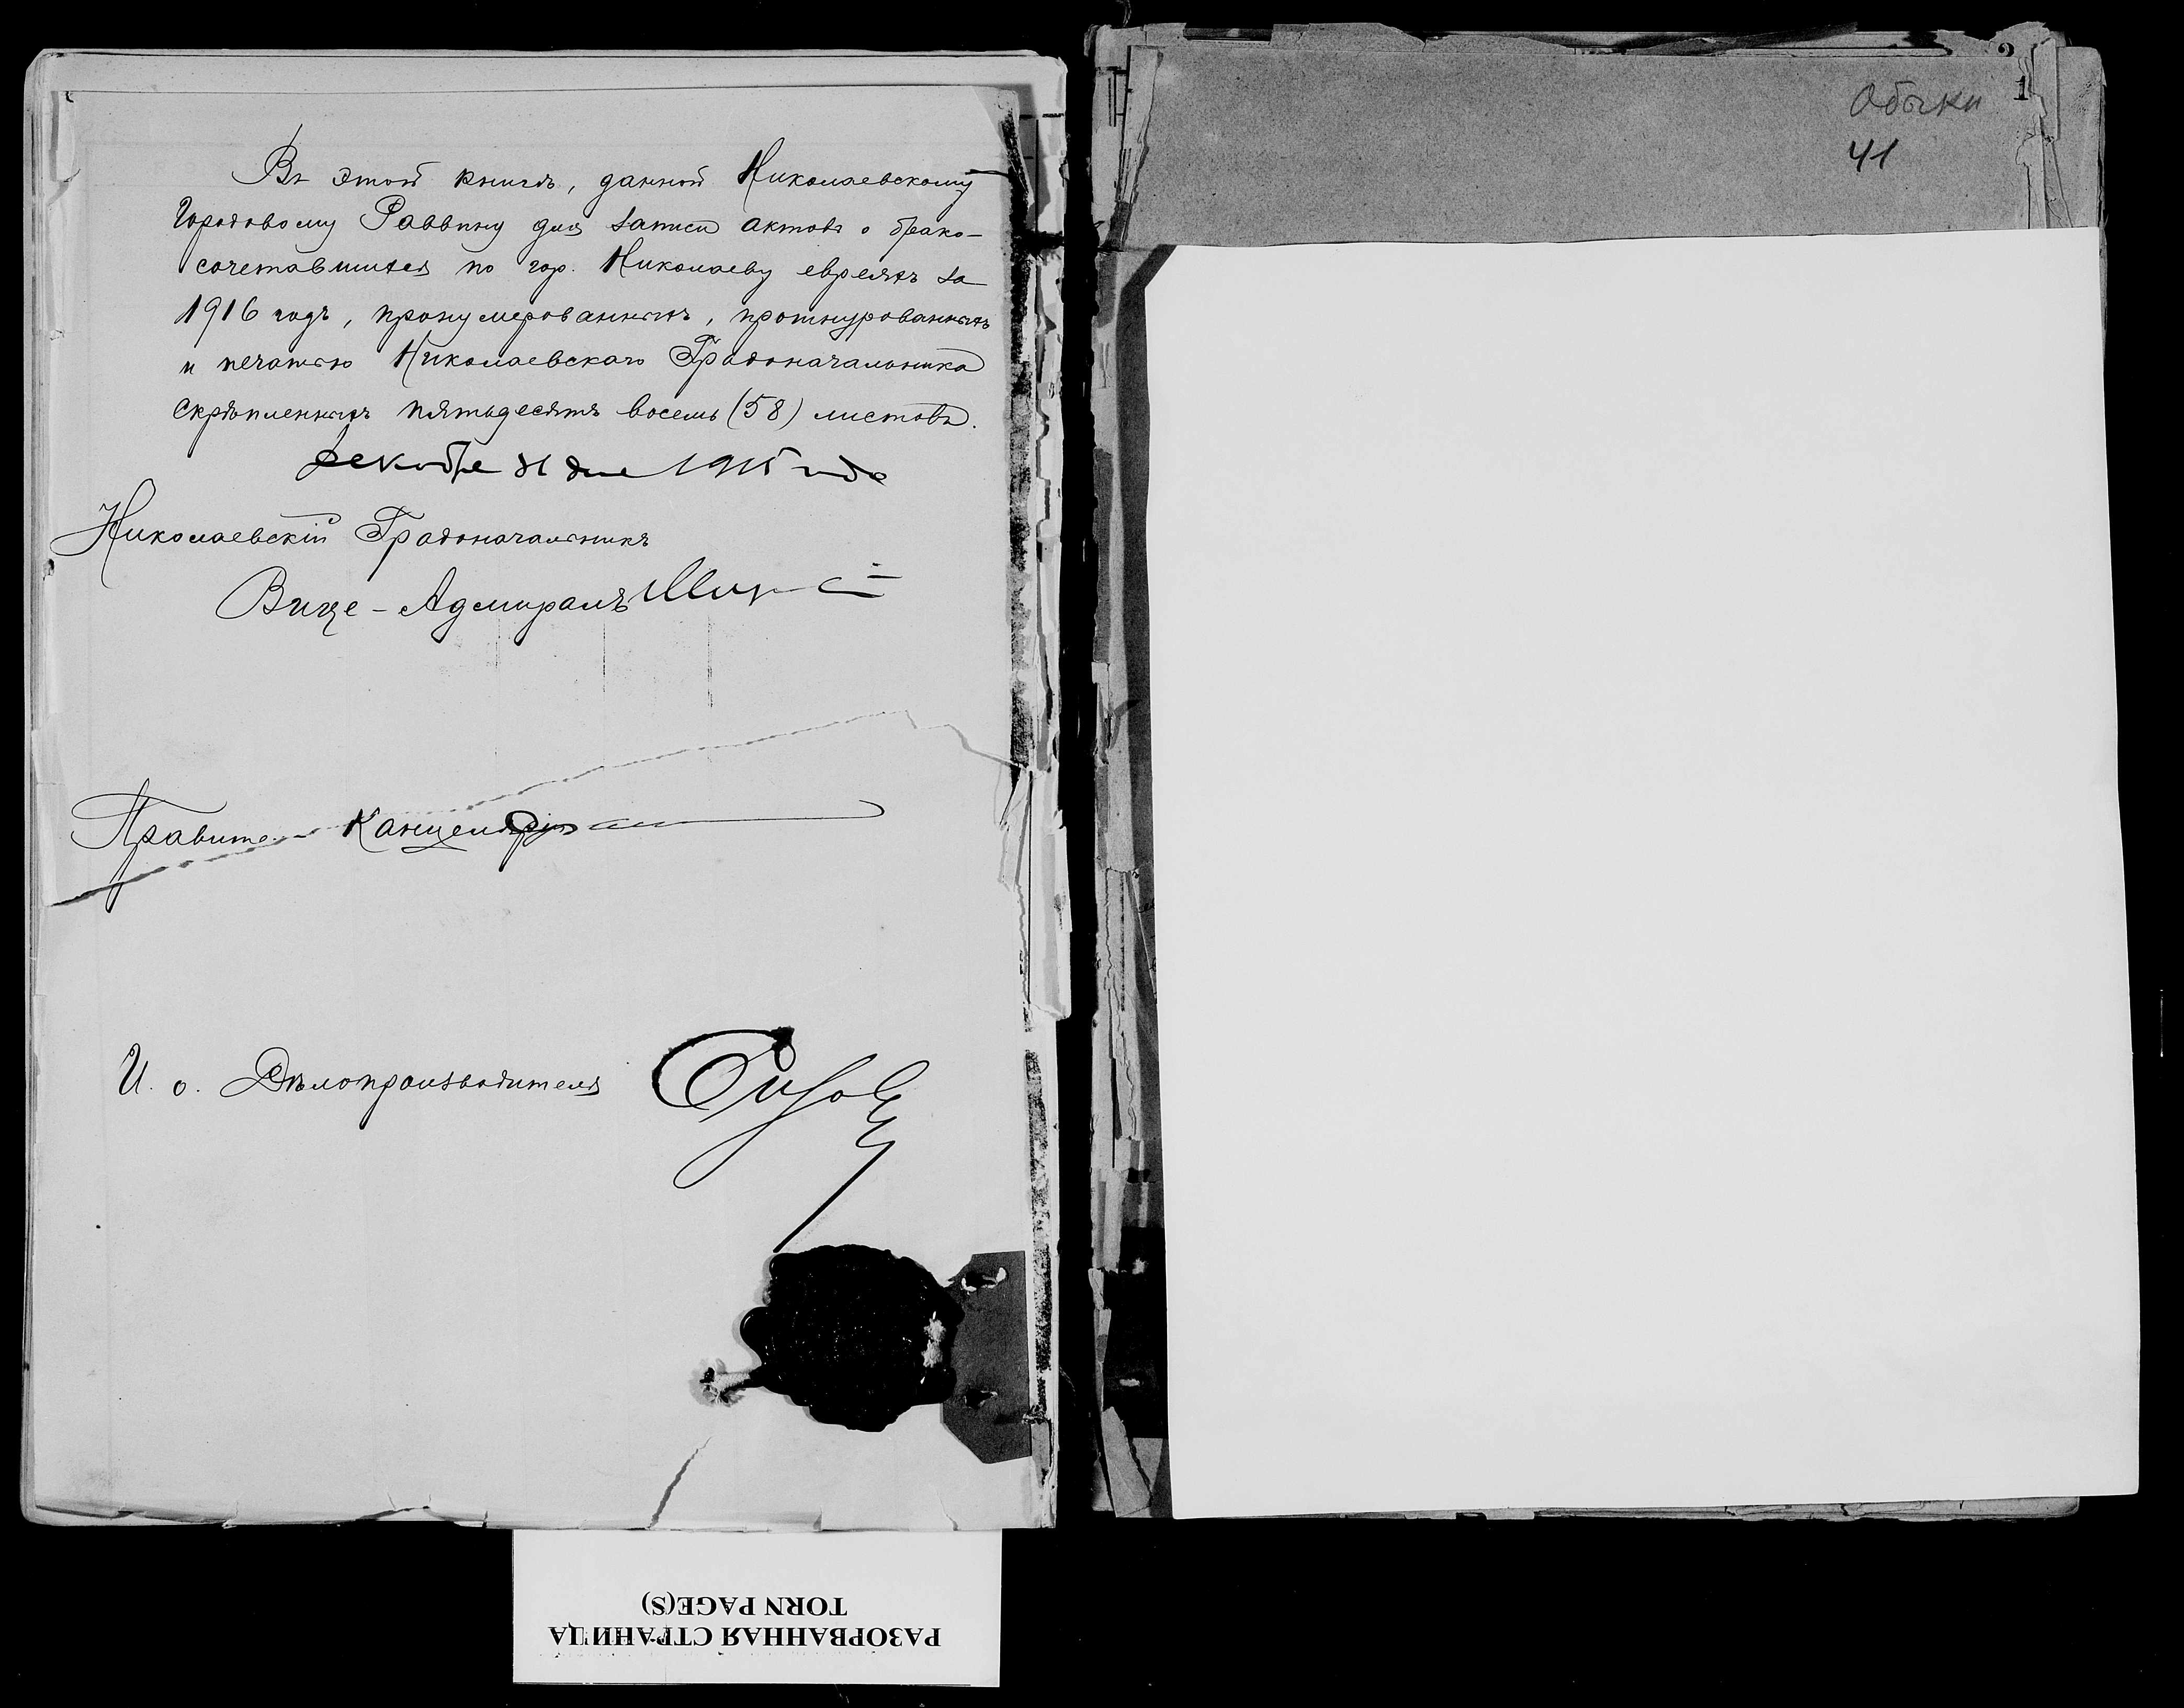 Въ этой книгѣ, данной Николаевскому
Городовому Раввину для записи актовъ о брако-
сочетавшихся по гор. Николаеву евреяхъ за
1916 годъ, пронумерованныхъ, прошнурованныхъ
и печатью Николаевскаго Градоначальника
скрѣпленныхъ пятьдесятъ восемь (58) листовъ.
Декабря 31 дня 1915 года
Николаевскій Градоначальникъ
Вице-Адмиралъ
Правитель Канцеляріи
И. о. Дѣлопроизводителя
1
41
РАЗОРВАННАЯ СТРАНИЦА
TORN PAGE(S)